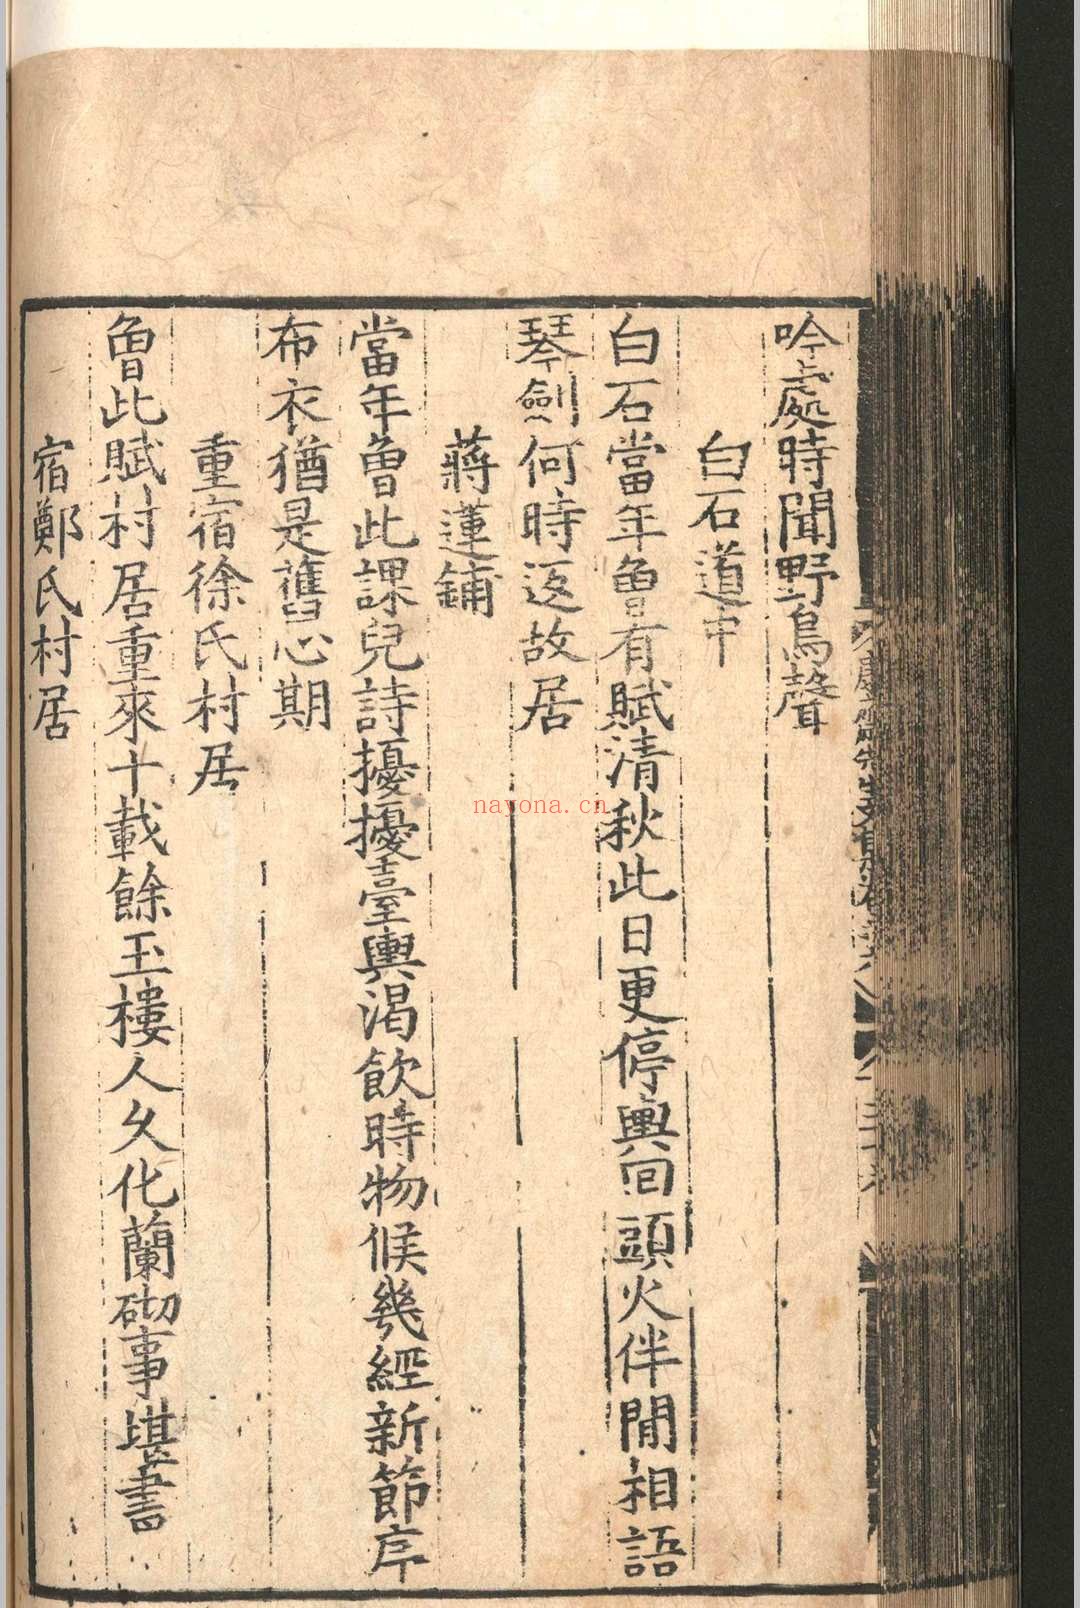 吟處時聞野鳥聲
白石道中
白石當年曾有賦清秋此日更停輿回頭火伴閒相語
琴劍何時返故居
蔣蓮鋪
當年曾此課兒詩擾擾臺輿渴飲時物候幾經新節序
布衣猶是舊心期
重宿徐氏村居
曾此賦村居重來十載餘玉樓人久化蘭砌事堪書
宿鄭氏村居
nayona.cn